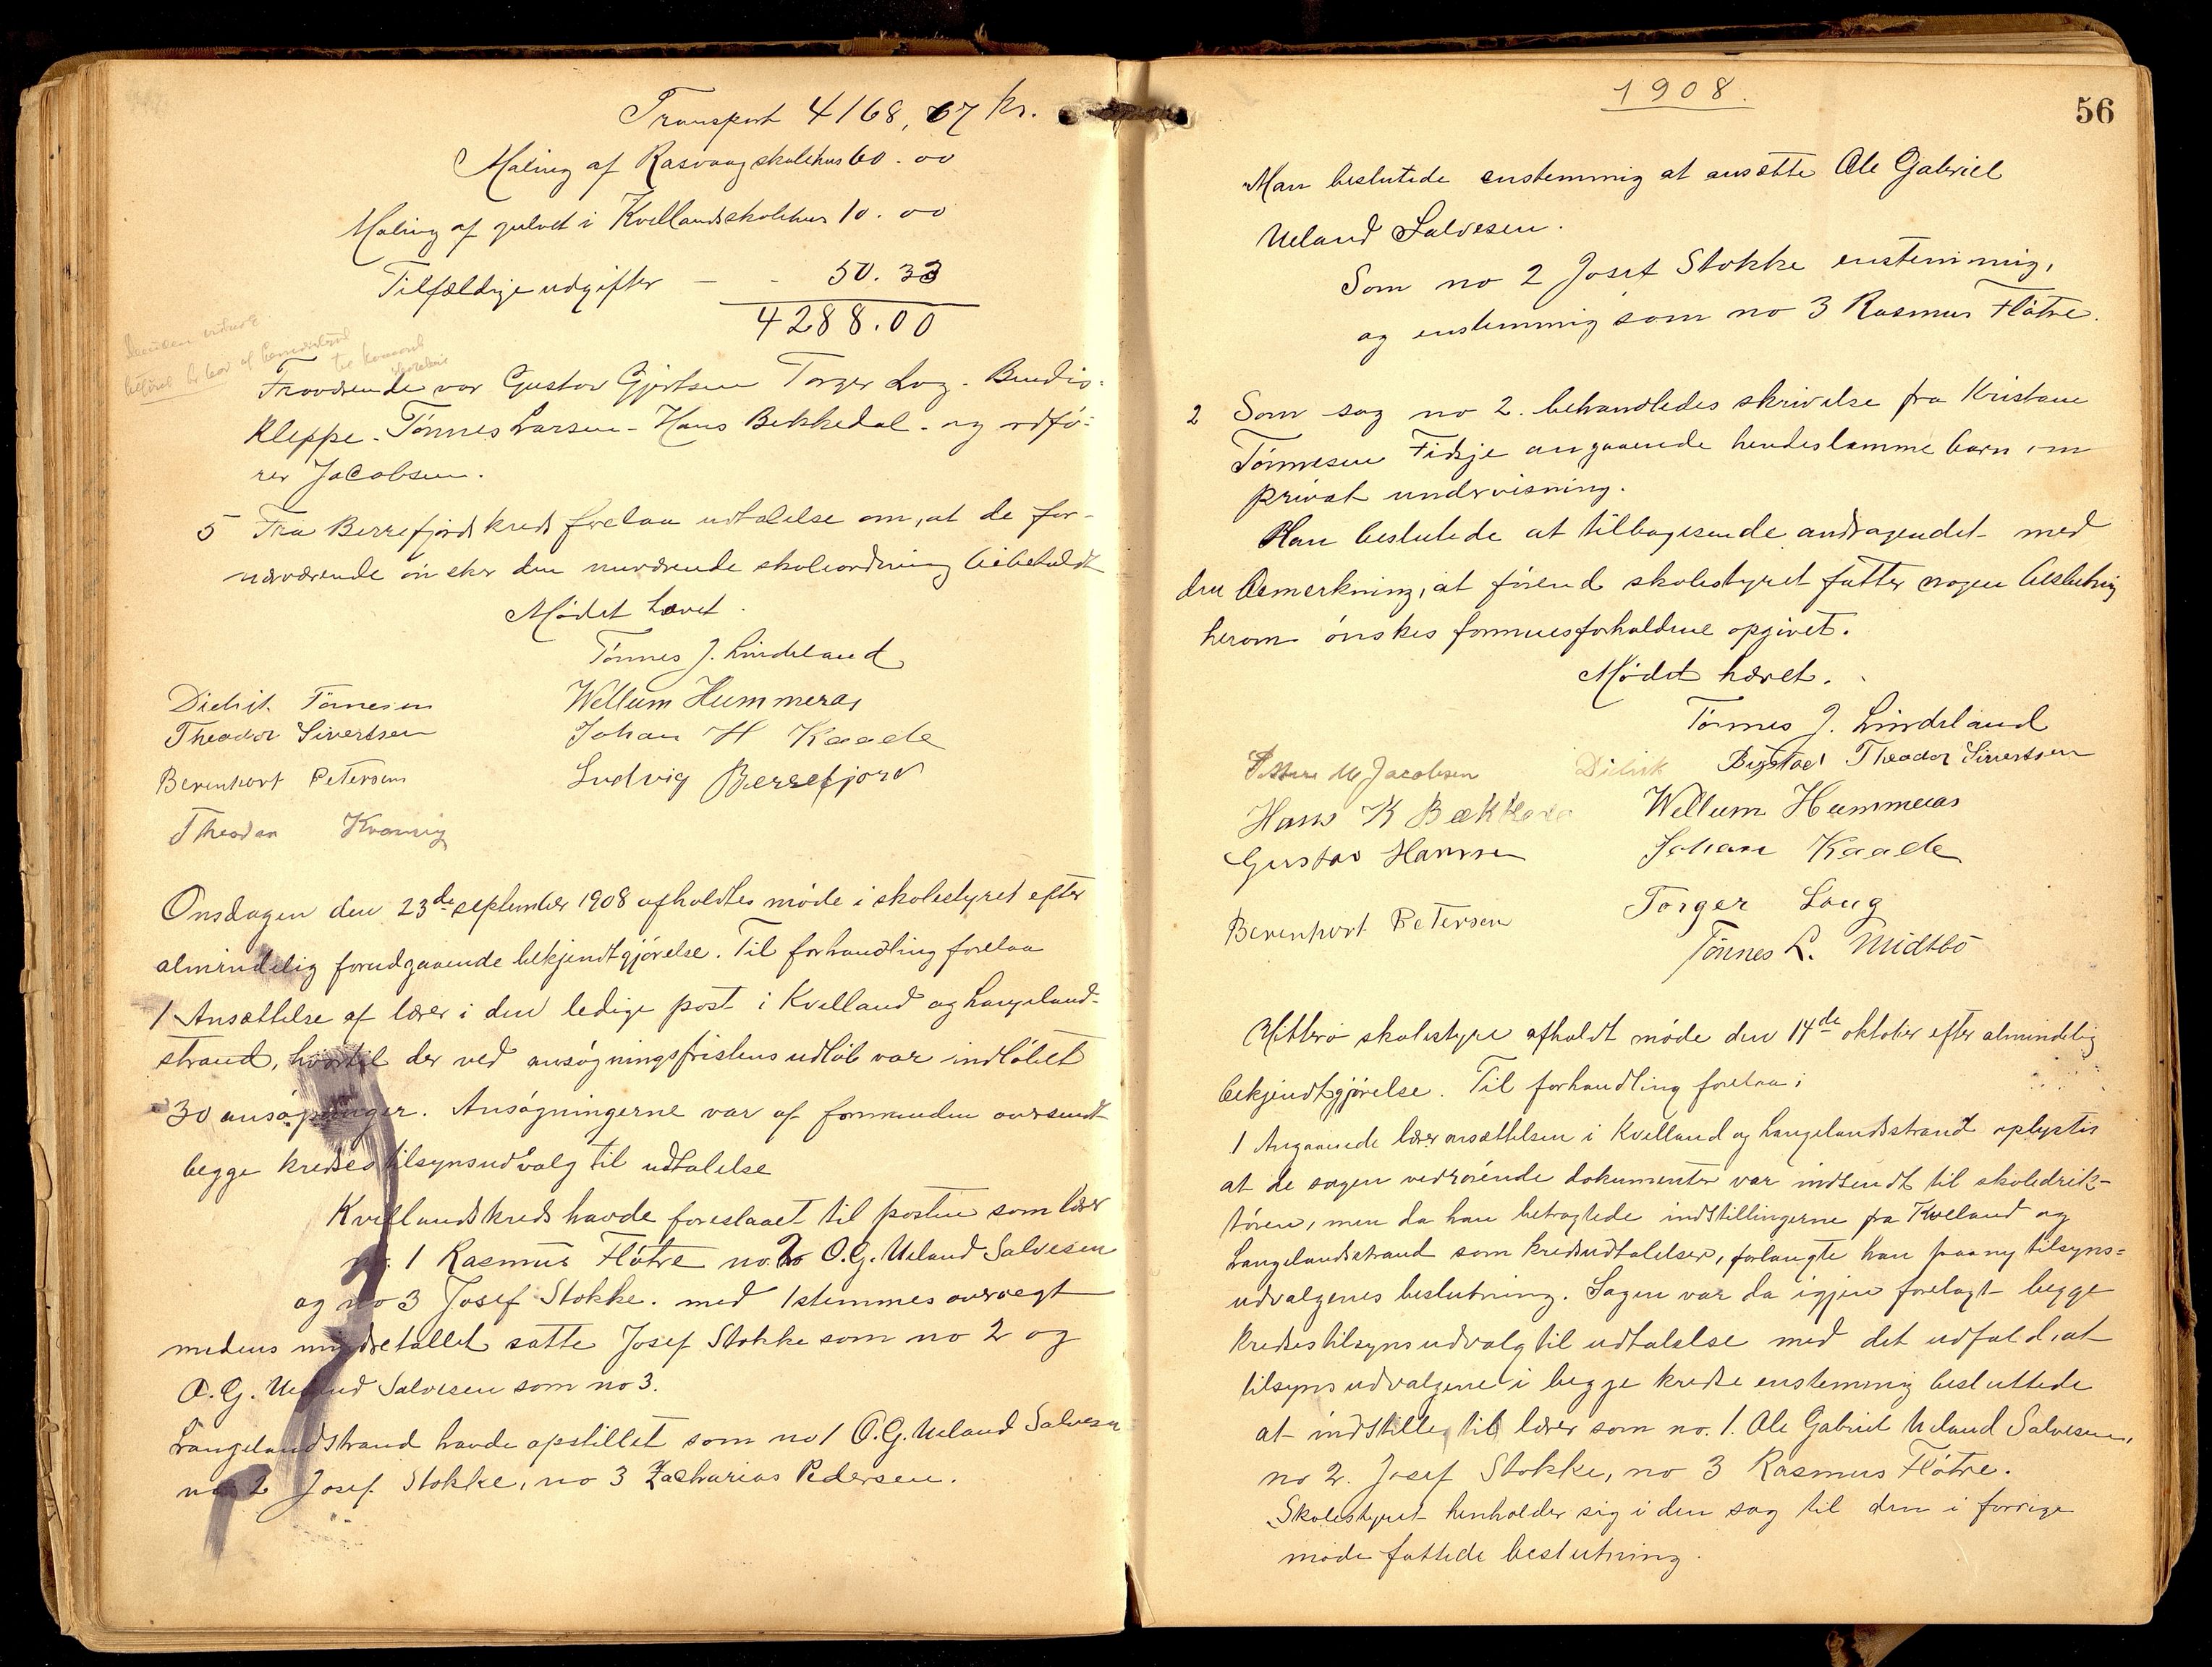 Transport 4168,67 kr.
Maling af Rasvaag skolehus 60.00
Maling af gulvet i Kvellandskolehus 10.00
Tilfældige udgifter — - 50.33
4288.00
Fraværende var Gustav Gjertsen Torger Log. Bendix
Kleppe. Tönnes Larsen - Hans Bekkedal. og ordfö-
rer Jacobsen.
5 Fra Berrefjords kreds forelaa udtalelse om, at de for-
nærværende önsker den nuværende skoleordning bibeholdt
Mödet hævet.
Tönnes J. Lindeland
Didrik Tönnesen Wellum Hummeras
Theodor Sivertsen Johan H Kaade
Berenhort Petersen Ludvig Berrefjord
Theodor Kvannig
Onsdagen den 23de september 1908 afholdtes möde i skolestyret efter
almindelig forudgaaende bekjendtgjörelse. Til forhandling forelaa
1 Ansættelse af lærer i den ledige post i Kvelland og Langeland-
strand, hvortil der ved ansögningsfristens udlöb var indlöbet
30 ansögninger. Ansögningerne var af formanden oversendt
begge kredses tilsynsudvalg til udtalelse
Kvellandskreds havde foreslaaet til posten som lærer
no. 1 Rasmus Flötre no. 2 O.G. Ueland Salvesen
og no 3 Josef Stokke. med 1 stemmes overvegt
medens mindretallet satte Josef Stokke som no 2 og
O.G. Ueland Salvesen som no 3.
Langelandstrand havde opstillet som no 1 O.G. Ueland Salvesen
no 2 Josef Stokke, no 3 Zacharias Pedersen.
1908.
56
Man beslutede enstemmig at ansætte Ole Gabriel
Ueland Salvesen.
Som no 2 Josef Stokke enstemmig,
og enstemmig som no 3 Rasmus Flötre.
2 Som sag no 2. behandledes skrivelse fra Kristane
Tönnesen Fidsje angaaende hendes lamme barn om
privat undervisning.
Man beslutede at tilbagesende andragendet med
den bemerkning, at förend skolestyret fatter nogen beslutning
herom önskes formuesforholdene opgivet.
Mödet hævet.
Tönnes J. Lindeland
M Jacobsen Didrik Bugstad Theodor Sivertsen
Hans K Bækkedal Wellum Hummeras
Gustav Hansen Johan Kaade
Torger Loug
Berenhort Petersen
Tönnes L. Midtbö
Hitterö skolestyre afholdt möde den 14de oktober efter almindelig
bekjendtgjörelse. Til forhandling forelaa:
1 Angaaende læreransættelsen i Kvelland og Langelandsstrand oplystes
at de sagen vedrörende dokumenter var indsendt til skoledirek-
tören, men da han betragtede indstillingerne fra Kvelland og
Langelandsstrand som kredsudtalelser, forlangte han paany tilsyns=
udvalgenes beslutning. Sagen var da igjen forelagt begge
kredses tilsynsudvalg til udtalelse med det udfald, at
tilsynsudvalgene i begge kredse enstemmig besluttede
at indstille til lærer som no. 1. Ole Gabriel Ueland Salvesen,
no 2. Josef Stokke, no 3 Rasmus Flötre.
Skolestyret henholder sig i den sag til den i forrige
möde fattede beslutning.